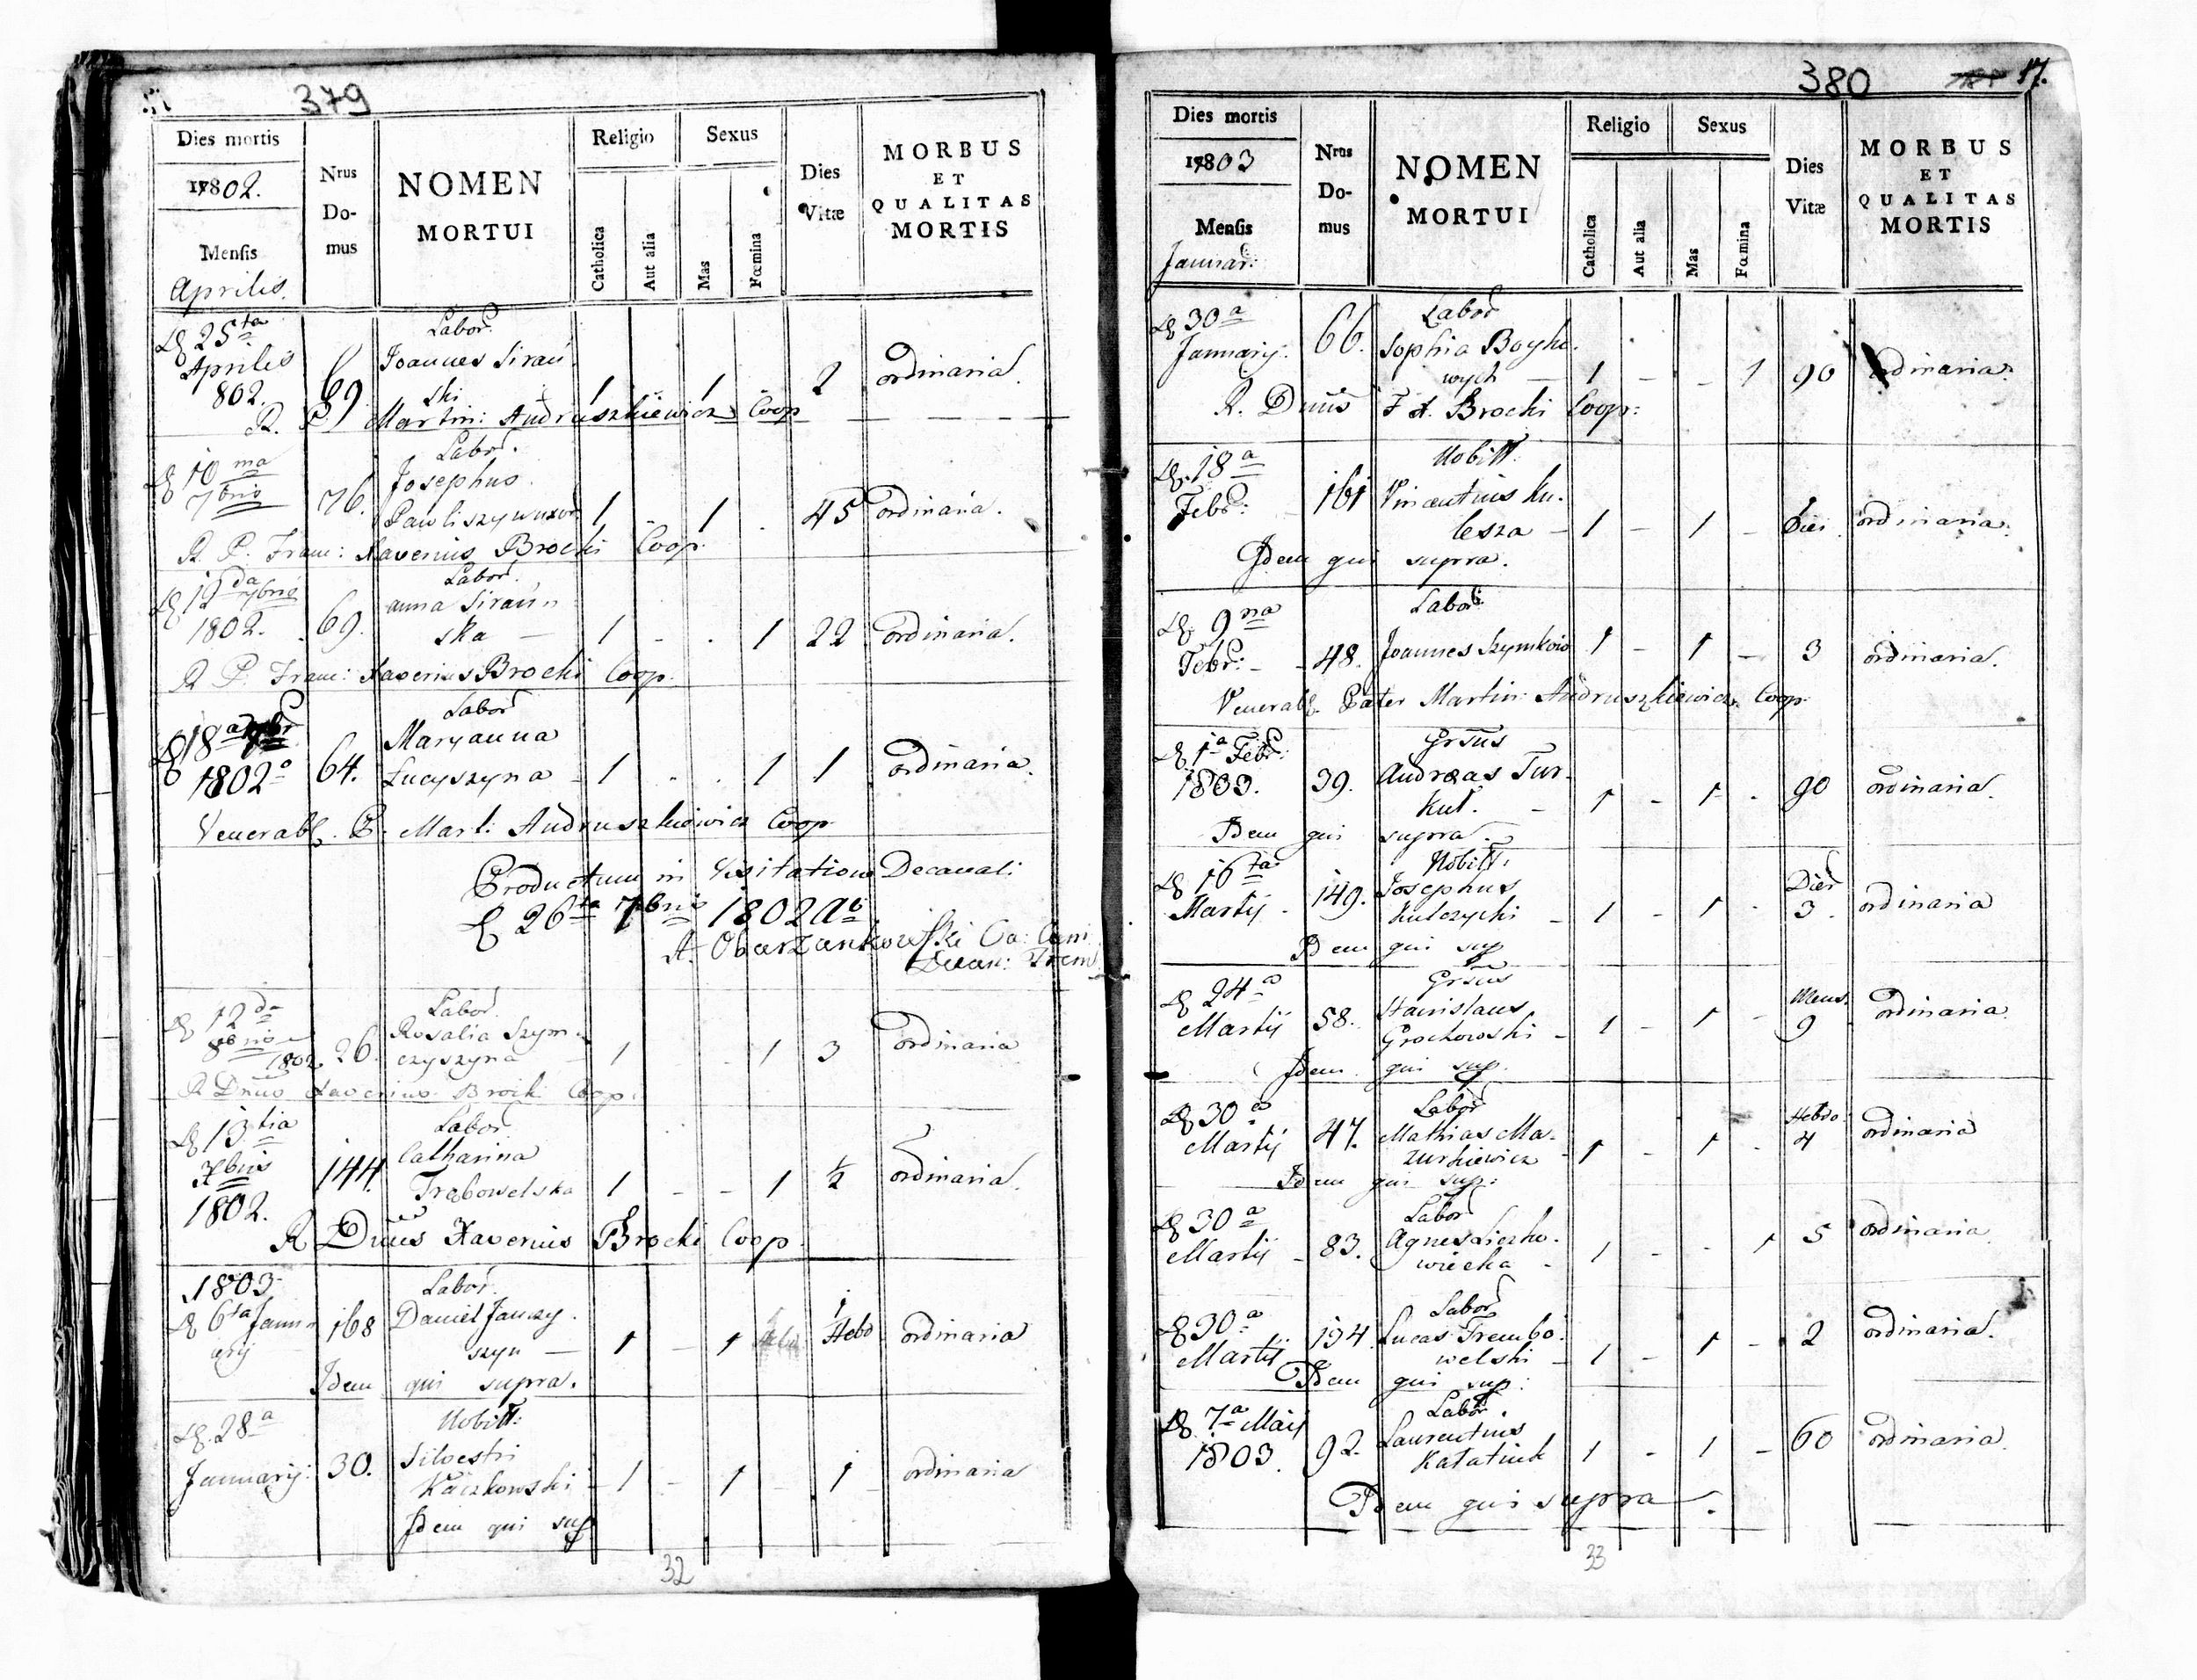 379
Dies mortis
1802.
Mensis
Aprilis.
Nrus
Do-
mus
NOMEN
MORTUI
Religio
Catholica
Aut alia
Sexus
Mas
Fœmina
Dies
Vitæ
MORBUS
ET
QUALITAS
MORTIS
25ta
Aprilis
802.
69.
Labor.
Joannes Sirań
ski
1 1 2 ordinaria.
R. P. Martin: Andruszkiewicz Coop
10ma
7bris
76.
Labor.
Josephus
1 - 1 . 45 ordinaria.
R. P. Franc: Xaverius Brocki Coop.
7bris
1802.
69.
Labor.
anna Sirańn
ska —
1 - . 1 22 ordinaria.
R. P. Franc: Xaverius Brocki Coop.
18a
1802o
64.
Labor
Maryanna
Lucyszyna
1 . . 1 1 ordinaria.
Venerabl. P. Mart: Andruszkiewicz Coop
Productum in Visitatione Decanali
26ta 7bris 1802
A. Obarzankowski
12da
8bris
1802.
26.
Labor.
Rosalia Szym
czyszyna
1 - - 1 3 ordinaria
R Dnus Xaverius Brock Coop.
13tia
1802.
144.
Labor
Catharina
Trębowelska
1 - - 1 ½ ordinaria.
R Dnus Xaverius Brocki Coop.
1803
6ta Janu
arij
168
Labor.
Daniel Janczy
szyn —
1 - 1
1
Hebd
ordinaria
Idem qui supra.
28a
Januarij:
30.
Nobill:
Silvestri
Kaczkowski
1 - 1 - 1 ordinaria
Idem qui sup
32
380
17.
Dies mortis
1803
Mensis
Januar:
Nrus
Do-
mus
NOMEN
MORTUI
Religio
Catholica
Aut alia
Sexus
Mas
Fœmina
Dies
Vitæ
MORBUS
ET
QUALITAS
MORTIS
30a
Januarij.
66.
Labor
Sophia Boyko.
wych —
1 - - 1 90 ordinaria.
R. Dnus F X. Brocki Coop:
18a
Febr:
161
Nobill.
Vincentius Ku.
lesza —
1 - 1 - ordinaria.
Idem qui supra.
9na
Febr: -
48.
Labor:
Joannes Szymkow
1 - 1 - 3 ordinaria.
Venerabl. Pater Martin: Andruszkiewicz Coop.
1a Febr:
1803.
39.
Grsus
Andreas Tur-
kut. -
1 - 1 . 90 ordinaria.
Idem qui supra.
16ta
Martij -
149.
Nobill:
Josephus
Kulczycki -
1 - 1 .
Dier
3.
ordinaria
Idem qui sup
24a
Martij
58.
Grsus
Stanislaus
Grochowski -
1 - 1 -
Mens.
9
ordinaria
Idem qui sup.
30a
Martij
47.
Labor
Mathias Ma-
zurkiewicz
1 - 1 .
Hebdo
4
ordinaria
Idem qui sup:
30a
Martij -
83.
Labor
1 - - 1 5 ordinaria
30a
Martij
134
Labor
Lucas Trembo.
welski -
1 - 1 - 2 ordinaria.
Idem qui sup:
7a Maij
1803.
92.
Labor.
Laurentius
Katatiuk
1 - 1 - 60 ordinaria.
Idem qui supra.
33